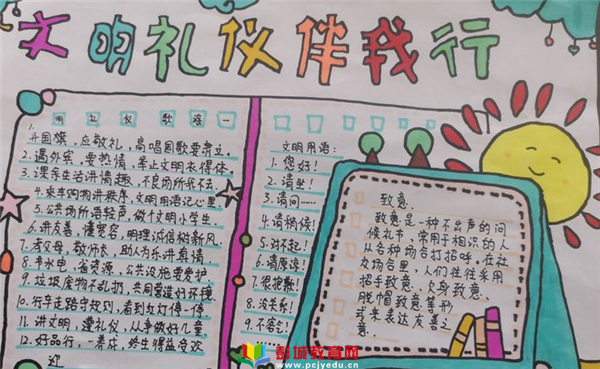 文明礼仪伴我行
明礼仪歌谣一
1.
升国旗，应敬礼，高唱国歌要肃立。
2.遇外宾，要热情，举止文明衣得体。
3.课余生活讲情趣，不良场所我不去。
4.乘车购物讲秩序，文明用语记心里。
5.公共场所语轻声，做个文明小学生。
6.讲友善，懂宽容，明理诚信树新风。
7.孝父母，敬师长，助人为乐讲真情。
8.节水电，省资源，公共设施要爱护。
9.垃圾废物不乱扔，共同营造好环境。
10.行车走路守规则，看到红灯停一停
11.讲文明，遵礼仪，从争做好儿童
12.好品行，一养成，终生得益受欢
迎
文明用语：
1.您好！
2.请坐！
3.请问……
4.请稍候！
5.对不起！
6.请原谅！
7.很抱歉！
8.没关系！
9.不客气！
致意
致意是一种不出声的问
候礼节，常用于相识的人
从各种场合打招呼。在社
交场合里，人们往往采用
招手致意、欠身致意、
脱帽致意等形
式来表达友善之
意.
彭城教育网
www.pcjyedu.cn